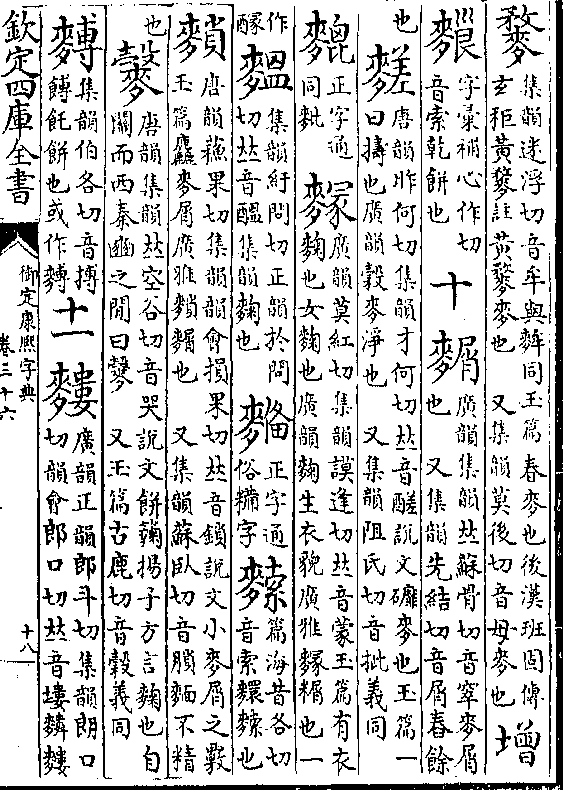 䴷 集韻迷浮切音牟與麰同玉篇春麥也後漢班固傳
玄秬黃䴷註黃䴷麥也 又集韻莫後切音母麥也 增
字彙補心作切
音索乾餅也 十 䴮 廣韻集韻𠀤蘇骨切音窣麥屑
也 又集韻先結切音屑舂餘
也 䴾 唐韻昨何切集韻才何切𠀤音醝說文䃺麥也玉篇一
曰擣也廣韻穀麥淨也 又集韻阻氏切音批義同
正字通
同麨 䴿 廣韻莫紅切集韻謨逢切𠀤音蒙玉篇有衣
麴也女麴也廣韻麴生衣貌廣雅䴿䊛也一
作
䤓 集韻紆問切正韻於問
切𠀤音醞集韻麴也 正字通
俗糒字 篇海昔各切
音索䴉䴱也
䴹 唐韻蘇果切集韻韻會損果切𠀤音鎖說文小麥屑之覈
玉篇麤麥屑廣雅䴹䴮也 又集韻蘇臥切音膹麵不精
也 㷤 唐韻集韻𠀤空谷切音哭說文餅䴷揚子方言麴也自
關而西秦豳之閒曰䴷 又玉篇古鹿切音穀義同
集韻伯各切音搏
餺飥餅也或作䪙 十一 䴹 廣韻正韻郎斗切集韻朗口
切韻會郎口切𠀤音塿䴼䴹
欽定四庫全書
御定康熙字典
卷三十六
十八